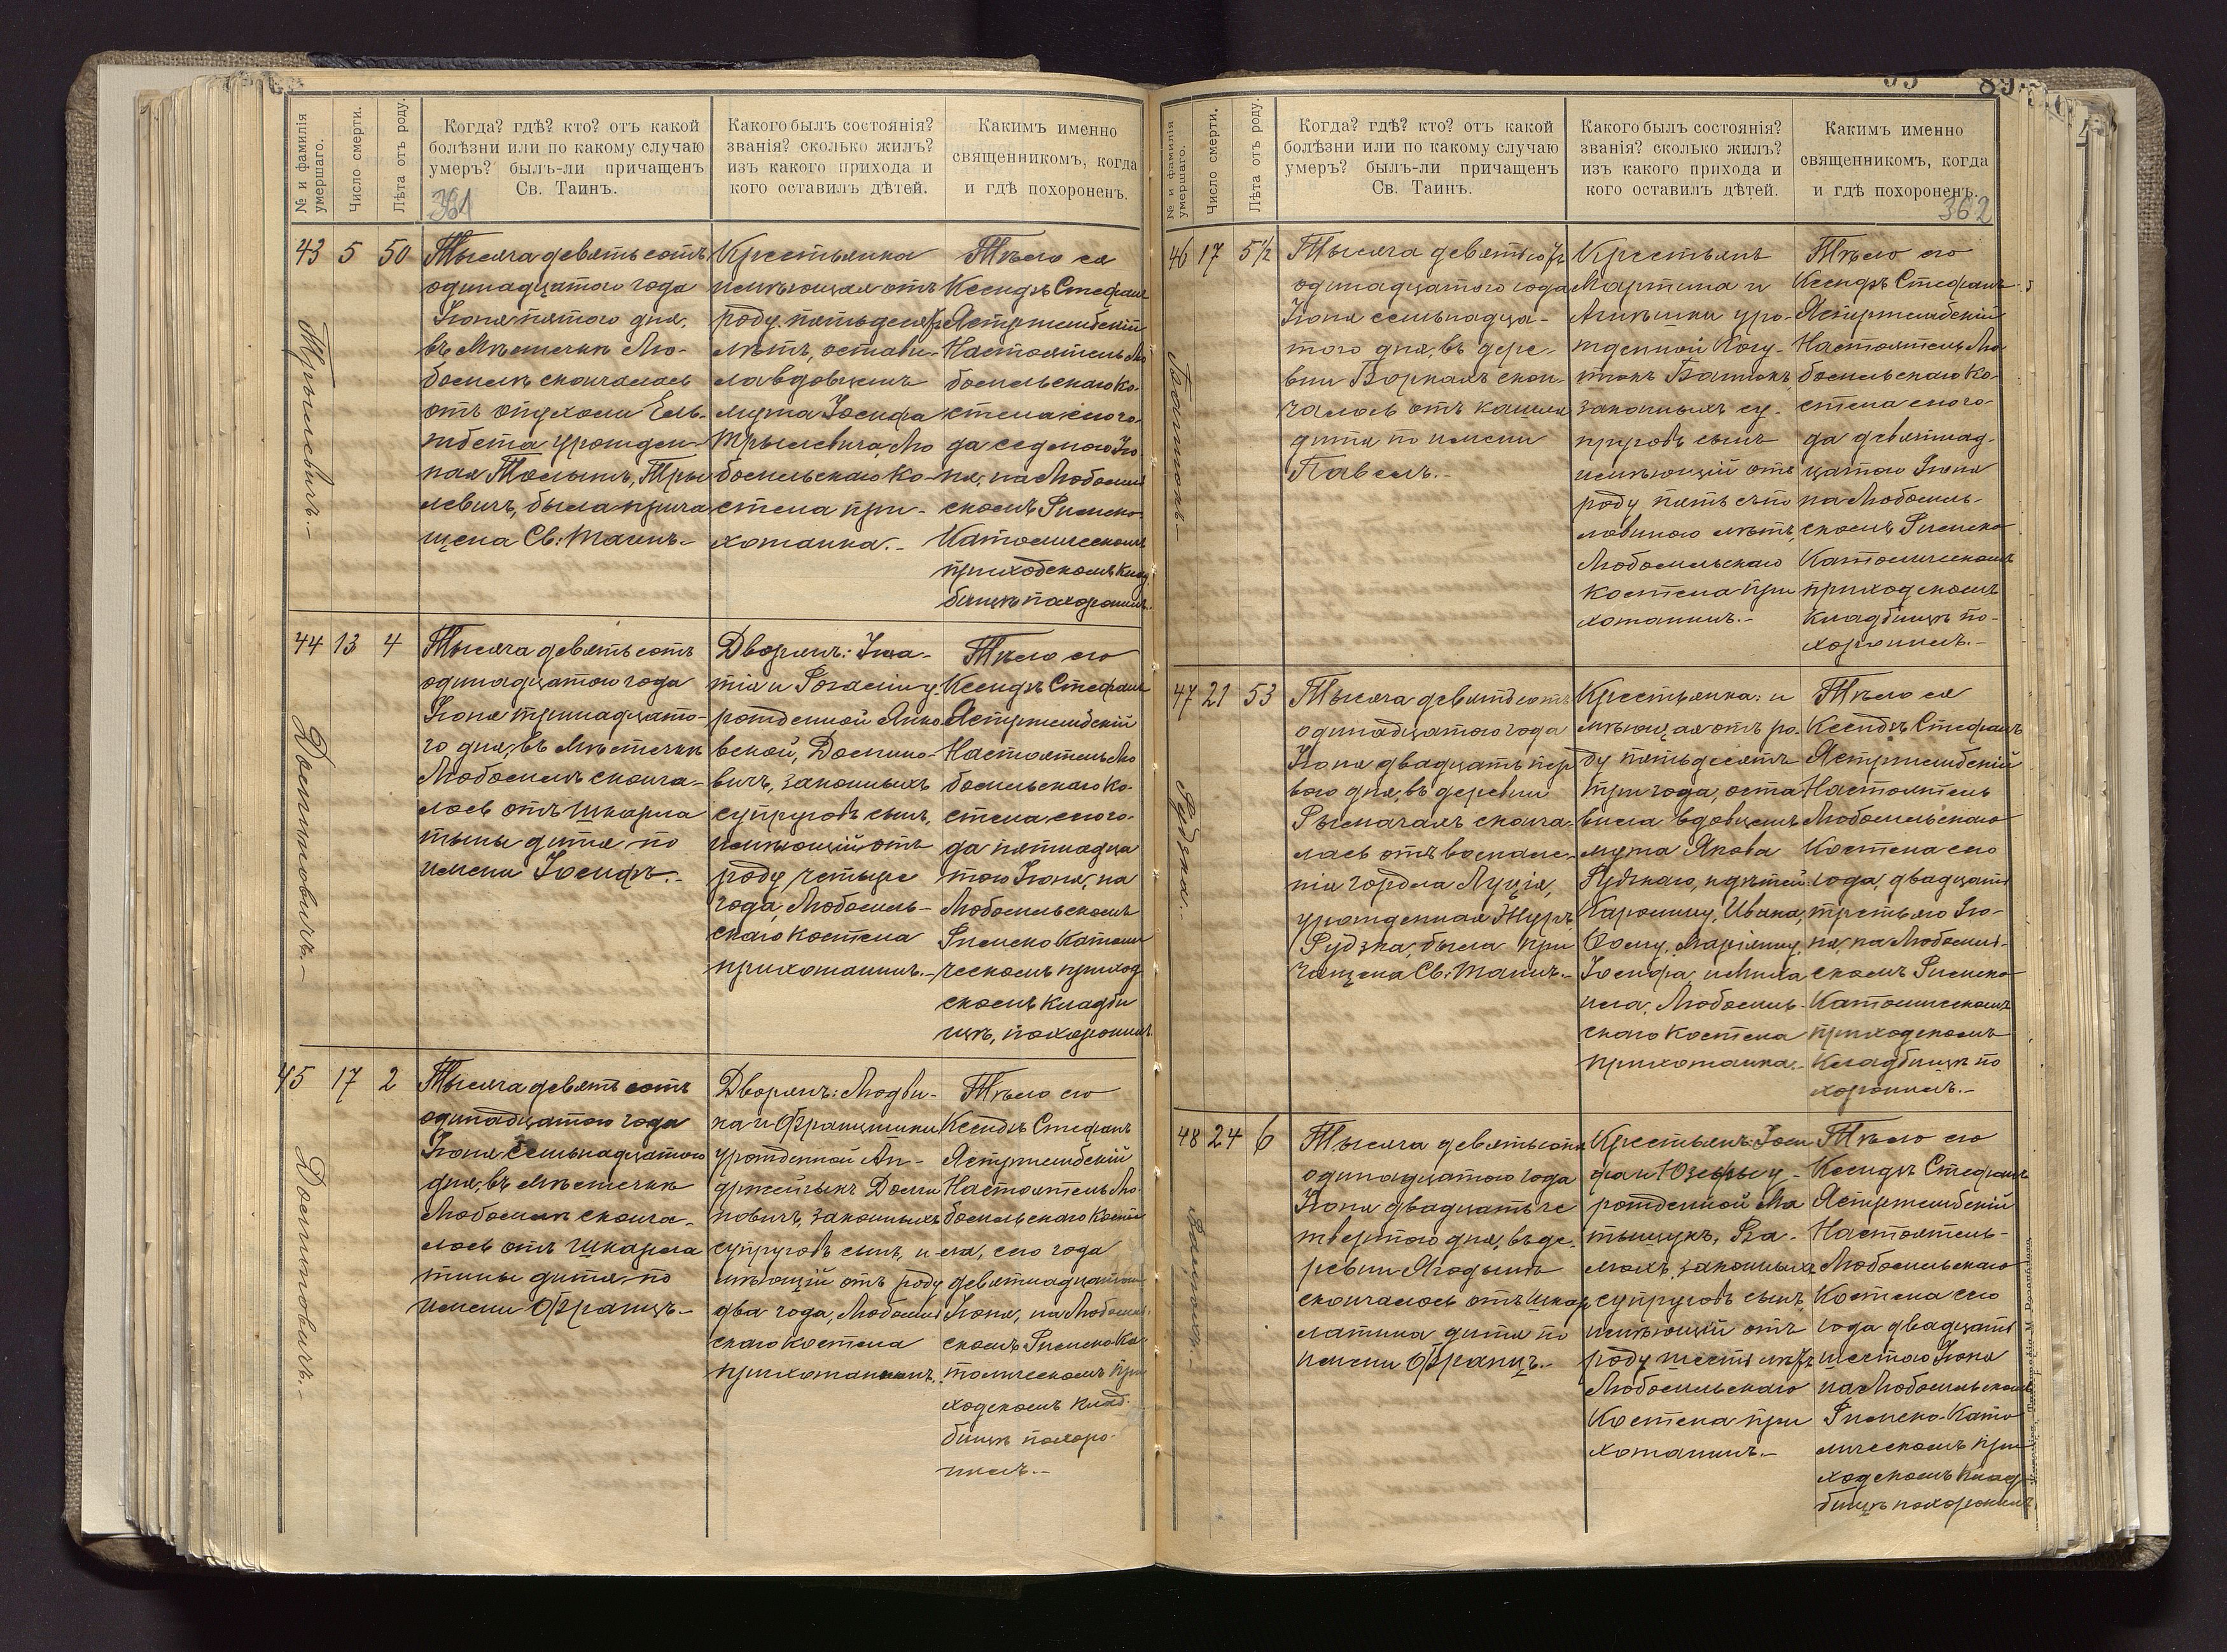 № и фамилія умершаго.
Число смерти.
Лѣта отъ роду.
Когда? гдѣ? кто? отъ какой
болѣзни или по какому случаю
умеръ? былъ-ли причащенъ
Св. Таинъ.
361
Какого былъ состоянія?
званія? сколько жилъ?
изъ какого прихода и
кого оставилъ дѣтей.
Какимъ именно
священникомъ, когда
и гдѣ похороненъ.
43
5
50
Тысяча девятьсотъ
одинадцатого года
Іюня пятого дня,
въ мѣстечкѣ Лю-
бомлѣ скончалась
отъ опухоли Ель-
жбета урожден-
ная
была прича
щена Св: Таинъ.-
Крестьянка
имѣющая отъ
роду пятьдесятъ
лѣтъ, остави-
ла вдовцемъ
мужа Іосифа
Лю
бомльскаго Ко-
стела при-
хожанка.-
Тѣло ея
Ксендзъ Стефанъ
Ястржембскій
Настоятель Лю
бомльскаго Ко-
стела сего го-
да седмого Ію
ня, на Любомль
скомъ Римско-
Католическомъ
приходскомъ клад
бищѣ похоронилъ.
44
13
4
Доминовичъ.-
Тысяча девятьсотъ
одинадцатого года
Іюня тринадцато-
го дня, въ мѣстечкѣ
Любомлѣ сконча-
лось отъ шкарла
тыны дитя по
имени Іосифъ.-
Дворянъ: Игна-
тія и у-
рожденной Янко
вской, Домино-
вичъ, законныхъ
супруговъ сынъ,
имѣющій отъ
роду четыре
года, Любомль-
скаго Костела
прихожанинъ.-
Тѣло его
Ксендзъ Стефанъ
Ястржембскій
Настоятель Лю
бомльскаго Ко-
стела сего го-
да пятнадца
того Іюня, на
Любомльскомъ
Римско Католи
ческомъ приход
скомъ кладби
щѣ, похоронилъ.
45
17
2
Доминовичъ.
Тысяча девятьсотъ
одинадцатого года
Іюня семьнадцатого
дня, въ мѣстечкѣ
Любомлѣ сконча-
лось отъ шкарла
тины дитя по
имени Францъ.-
Дворянъ: Людви-
ка и Францишки
урожденной Ан-
држейчыкъ Доми
новичъ, законныхъ
супруговъ сынъ, и-
мѣющій отъ роду
два года, Любомль
скаго Костела
прихожанинъ.
Тѣло его
Ксендзъ Стефанъ
Ястржембскій
Настоятель Лю-
бомльскаго Косте
ла, сего года
девятнадцатого
Іюня, на Любомль
скомъ Римско Ка-
толическомъ при
ходскомъ клад-
бищѣ похоро-
нилъ.-
№ и фамилія умершаго.
Число смерти.
Лѣта отъ роду.
Когда? гдѣ? кто? отъ какой
болѣзни или по какому случаю
умеръ? былъ-ли причащенъ
Св. Таинъ.
Какого былъ состоянія?
званія? сколько жилъ?
изъ какого прихода и
кого оставилъ дѣтей.
Какимъ именно
священникомъ, когда
и гдѣ похороненъ.
362
46
17
5½
Тысяча девятьсотъ
одинадцатого года
Іюня семьнадца-
того дня, въ дере-
вни Боркахъ скон-
чалось отъ кашля
дитя по имени
Павелъ.-
Крестьянъ
Мартина и
Агнѣшки уро-
жденной
законныхъ су-
пруговъ сынъ
имѣющій отъ
роду пять съ по
ловиною лѣтъ,
Любомльскаго
Костела при
хожанинъ.-
Тѣло его
Ксендзъ Стефанъ
Ястржембскій
Настоятель Лю
бомльскаго Ко-
стела сего го-
да девятнад-
цатого Іюня
на Любомль-
скомъ Римско
Католическомъ
приходскомъ
кладбищѣ по-
хоронилъ.-
47
21
53
Рудзка.
Тысяча девятьсотъ
одинадцатого года
Іюня двадцать пер
вого дня, въ деревни
Рымачахъ сконча-
лась отъ воспале-
нія горбла Луція,
урожденная Жукъ,
Рудзка, была при
чащена Св: Таинъ.-
Крестьянка: и
мѣющая отъ ро-
ду пятьдесятъ
три года, оста
вила вдовцемъ
мужа Якова
Рудзкаго, и дѣтей:
Каролину, Ивана,
Маріянну,
Іосифа и Миха
ила, Любомль-
скаго Костела
прихожанка.-
Тѣло ея
Ксендзъ Стефанъ
Ястржембскій
Настоятель
Любомльскаго
Костела сего
года, двадцать
третьяго Ію-
ня, на Любомль-
скомъ Римско
Католическомъ
приходскомъ
кладбищѣ по
хоронилъ.-
48
24
6
Тысяча девятьсотъ
одинадцатого года
Іюня двадцать че
твертого дня, въ де-
ревни Ягодынѣ
скончалось отъ шкар
латина дитя по
имени Францъ.-
Крестьянъ: Іоси
фа и Юзефы у-
рожденной Ма
законныхъ
супруговъ сынъ,
имѣющій отъ
роду шесть лѣтъ
Любомльскаго
Костела при
хожанинъ.-
Тѣло его
Ксендзъ Стефанъ
Ястржембскій
Настоятель-
Любомльскаго
Костела сего
года двадцать
шестого Іюня
на Любомльскомъ
Римско-Като
лическомъ при
ходскомъ клад-
бищѣ похоронилъ